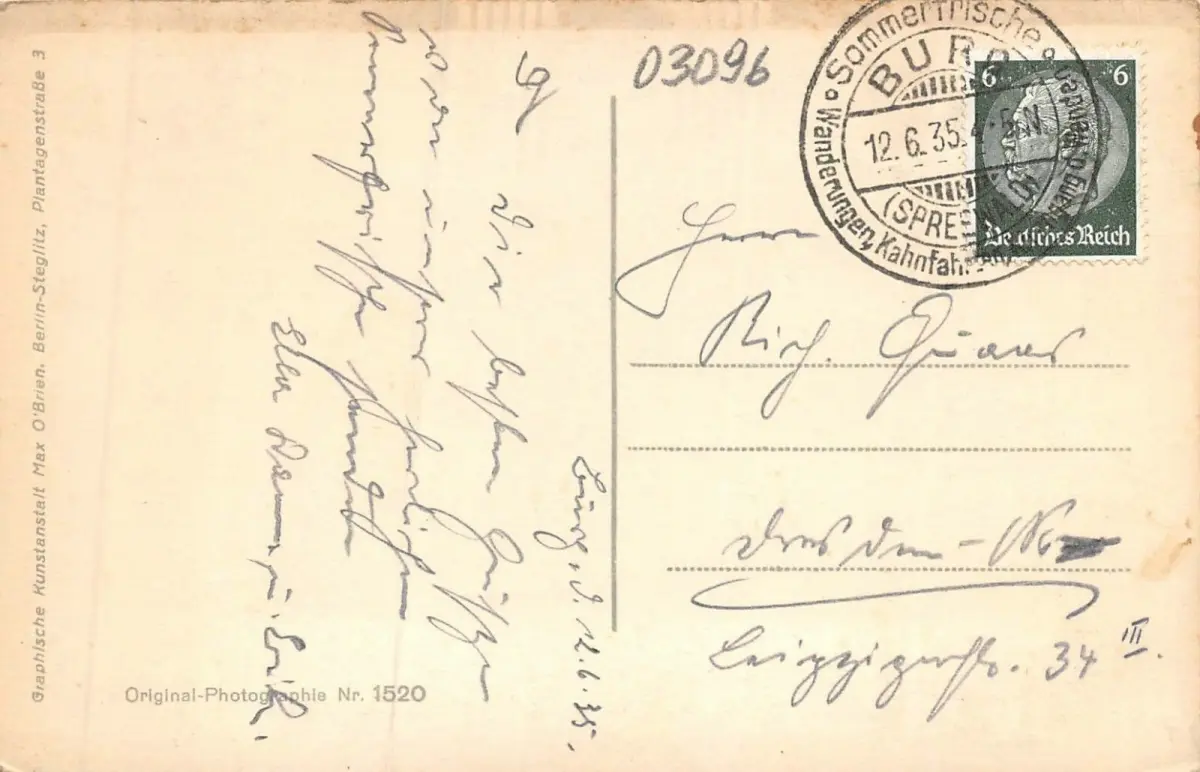 03096
Sommerfrische
BURG
12.6.35.
(SPREEWALD)
Wanderungen, Kahnfahrten
6 6
Deutsches Reich
Burg, d. 12.6.35.
Die besten Grüße
von unserer herrlichen
Sommerfrische senden
Ella u. Erich.
Herrn
Rich. Quaas
Dresden-
Leipzigerstr. 34 III.
Original-Photographie Nr. 1520
Graphische Kunstanstalt Max O'Brien, Berlin-Steglitz, Plantagenstraße 3